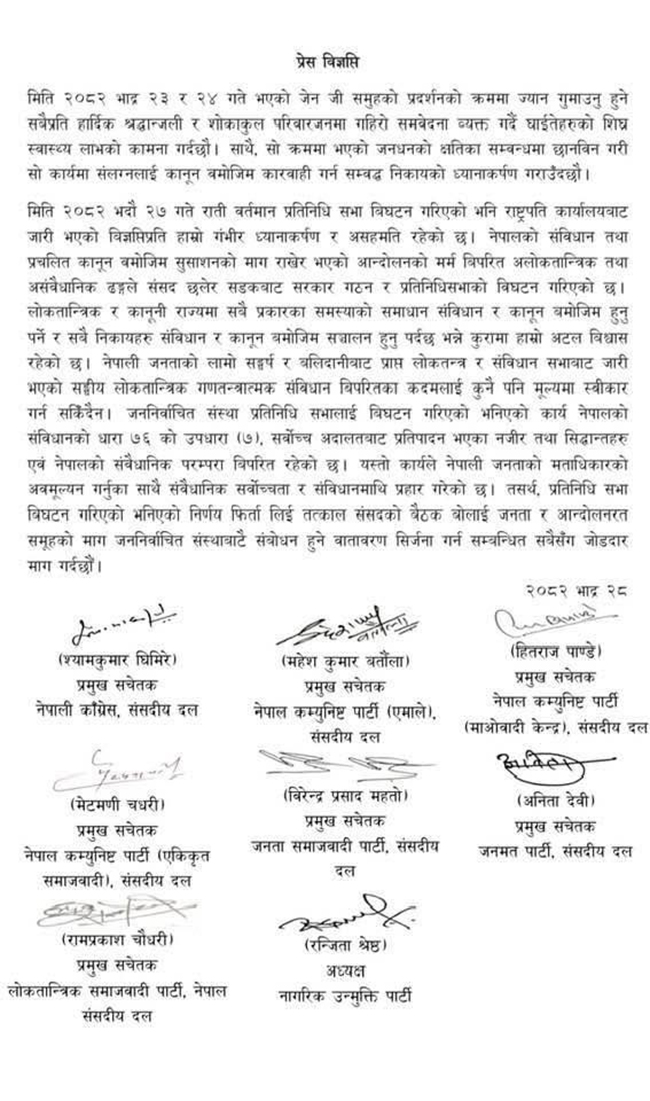 प्रेस विज्ञप्ति
मिति २०८२ भाद्र २३ र २४ गते भएको जेन जी समुहको प्रदर्शनको क्रममा ज्यान गुमाउनु हुने
सबैप्रति हार्दिक श्रद्धान्जली र शोकाकुल परिवारजनमा गहिरो समवेदना व्यक्त गर्दै घाईतेहरुको शिघ्र
स्वास्थ्य लाभको कामना गर्दछौं। साथै, सो क्रममा भएको जनधनको क्षतिका सम्बन्धमा छानविन गरी
सो कार्यमा संलग्नलाई कानून बमोजिम कारवाही गर्न सम्वद्ध निकायको ध्यानाकर्षण गराउँदछौं।
मिति २०८२ भदौ २७ गते राती वर्तमान प्रतिनिधि सभा विघटन गरिएको भनि राष्ट्रपति कार्यालयबाट
जारी भएको विज्ञप्तिप्रति हाम्रो गंभीर ध्यानाकर्षण र असहमति रहेको छ। नेपालको संविधान तथा
प्रचलित कानून बमोजिम सुसाशनको माग राखेर भएको आन्दोलनको मर्म बिपरित अलोकतान्त्रिक तथा
असंवैधानिक ढङ्गले संसद छलेर सडकबाट सरकार गठन र प्रतिनिधिसभाको विघटन गरिएको छ।
लोकतान्त्रिक र कानूनी राज्यमा सबै प्रकारका समस्याको समाधान संविधान र कानून बमोजिम हुनु
पर्ने र सबै निकायहरु संविधान र कानून बमोजिम सञ्चालन हुनु पर्दछ भन्ने कुरामा हाम्रो अटल विश्वास
रहेको छ। नेपाली जनताको लामो सङ्घर्ष र बलिदानीबाट प्राप्त लोकतन्त्र र संविधान सभाबाट जारी
भएको सङ्घीय लोकतान्त्रिक गणतन्त्रात्मक संविधान बिपरितका कदमलाई कुनै पनि मूल्यमा स्वीकार
गर्न सकिँदैन। जननिर्वाचित संस्था प्रतिनिधि सभालाई विघटन गरिएको भनिएको कार्य नेपालको
संविधानको धारा ७६ को उपधारा (७), सर्वोच्च अदालतबाट प्रतिपादन भएका नजीर तथा सिद्धान्तहरु
एवं नेपालको संवैधानिक परम्परा बिपरित रहेको छ। यस्तो कार्यले नेपाली जनताको मताधिकारको
अवमूल्यन गर्नुका साथै संवैधानिक सर्वोच्चता र संविधानमाथि प्रहार गरेको छ। तसर्थ, प्रतिनिधि सभा
विघटन गरिएको भनिएको निर्णय फिर्ता लिई तत्काल संसदको बैठक बोलाई जनता र आन्दोलनरत
समूहको माग जननिर्वाचित संस्थाबाटै संबोधन हुने वातावरण सिर्जना गर्न सम्बन्धित सबैसँग जोडदार
माग गर्दछौं।
२०८२ भाद्र २८
(श्यामकुमार घिमिरे)
प्रमुख सचेतक
नेपाली काँग्रेस, संसदीय दल
(महेश कुमार बर्तौला)
प्रमुख सचेतक
नेपाल कम्युनिष्ट पार्टी (एमाले),
संसदीय दल
(हितराज पाण्डे)
प्रमुख सचेतक
नेपाल कम्युनिष्ट पार्टी
(माओवादी केन्द्र), संसदीय दल
(मेटमणी चधरी)
प्रमुख सचेतक
नेपाल कम्युनिष्ट पार्टी (एकिकृत
समाजवादी), संसदीय दल
(बिरेन्द्र प्रसाद महतो)
प्रमुख सचेतक
जनता समाजवादी पार्टी, संसदीय
दल
(अनिता देवी)
प्रमुख सचेतक
जनमत पार्टी, संसदीय दल
(रामप्रकाश चौधरी)
प्रमुख सचेतक
लोकतान्त्रिक समाजवादी पार्टी, नेपाल
संसदीय दल
(रन्जिता श्रेष्ठ)
अध्यक्ष
नागरिक उन्मुक्ति पार्टी